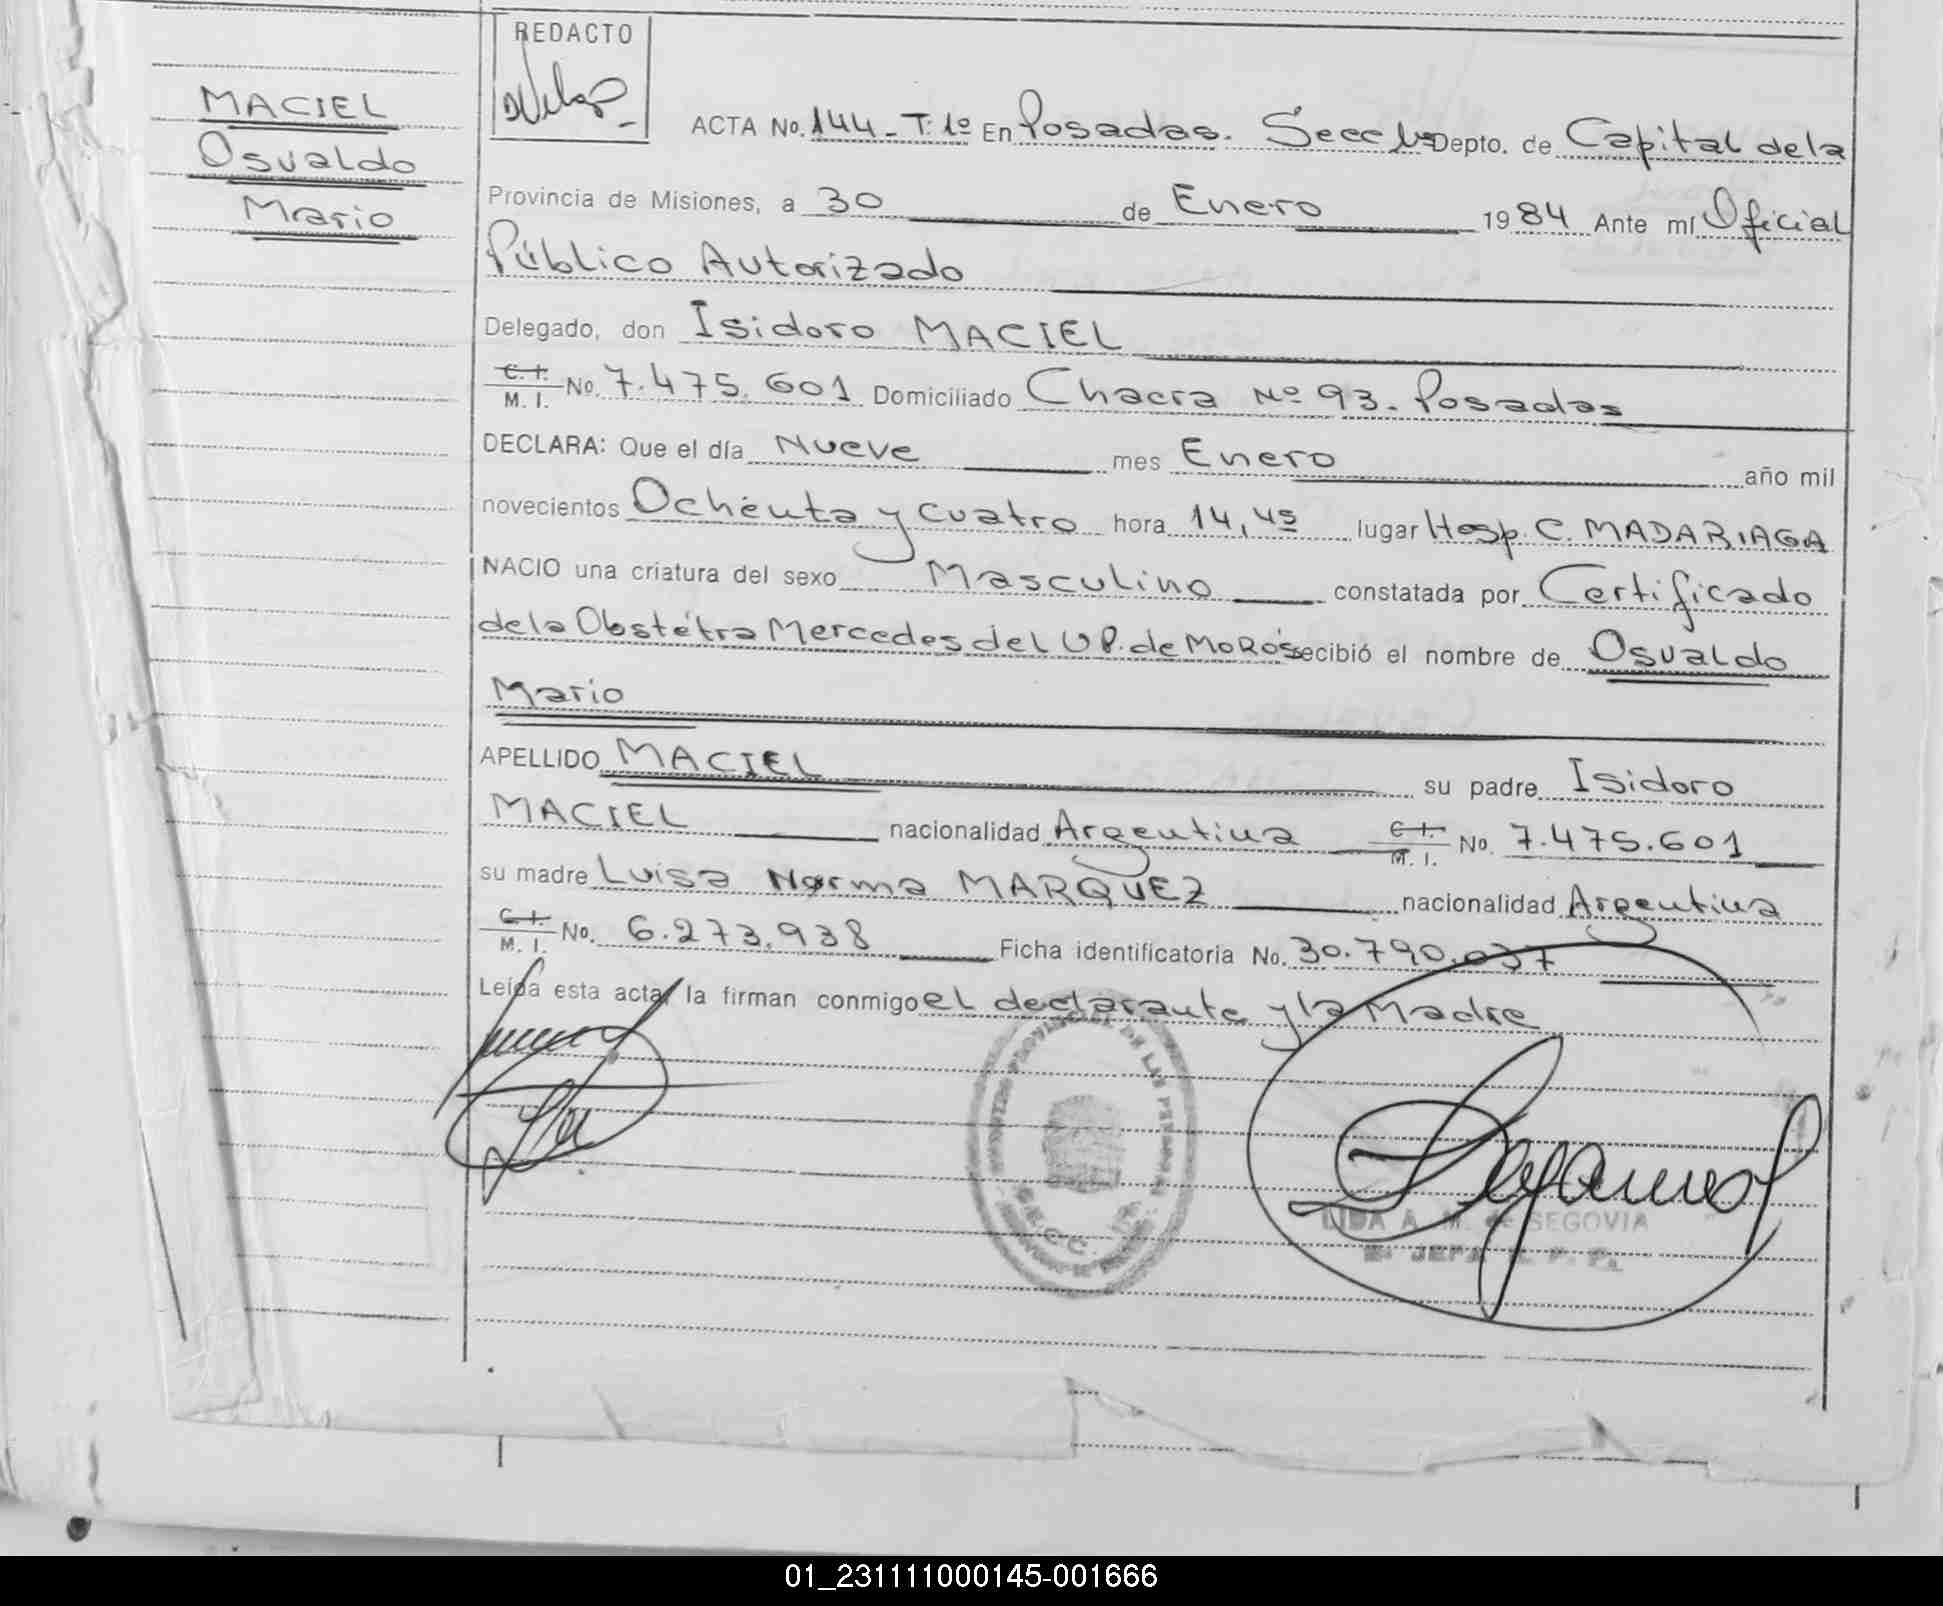 REDACTO
MACIEL
Osvaldo
Mario
ACTA No. 144 - T: 1º En Posadas. Secc Depto. de Capital de la
Provincia de Misiones, a 30 de Enero 1984 Ante mí Oficial
Público Autorizado
Delegado, don Isidoro MACIEL
C. I.
M. I. No. 7.475.601 Domiciliado Chacra Nº 93. Posadas
DECLARA: Que el día Nueve mes Enero año mil
novecientos Ochenta y cuatro hora 14,45 lugar Hosp. C. MADARIAGA
NACIO una criatura del sexo Masculino constatada por Certificado
de la Obstétra Mercedes del V P. de MOROS recibió el nombre de Osvaldo
Mario
APELLIDO MACIEL su padre Isidoro
MACIEL nacionalidad Argentina C. I. M. I. No. 7.475.601
su madre Luisa Norma MARQUEZ nacionalidad Argentina
C. I.
M. I. No. 6.273.938 Ficha identificatoria No. 30.790.037
Leída esta acta, la firman conmigo el declarante y la Madre
REGISTRO PROVINCIAL DE LAS PERSONAS
SECC. 1ra
LIDA A. M. de SEGOVIA
JEFA R. P. P.
01_231111000145-001666